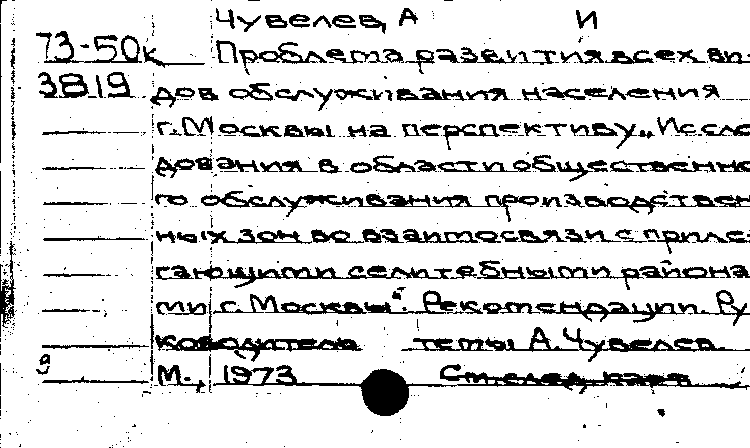 Чувелев, А И
73-50к Проблема развития всех ви-
3819 дов обслуживания населения
г.Москвы на перспективу „Иссле
дования в области общественно
го обслуживания производствен
ных зон во взаимосвязи с приле-
гающими селитебными района
ми г. Москвы". Рекомендации. Ру
ководителя темы А.Чувелев.
М., 1973 См.след.карт